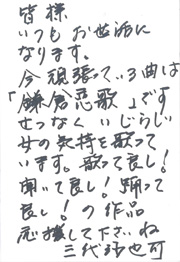 皆様
いつもお世話に
なります。
今頑張っている曲は
「鎌倉恋歌」です
せつなくいじらしい
女の気持を歌って
います。歌って良し!
聞いて良し!踊って
良し!の作品
応援して下さいね
三代沙也可